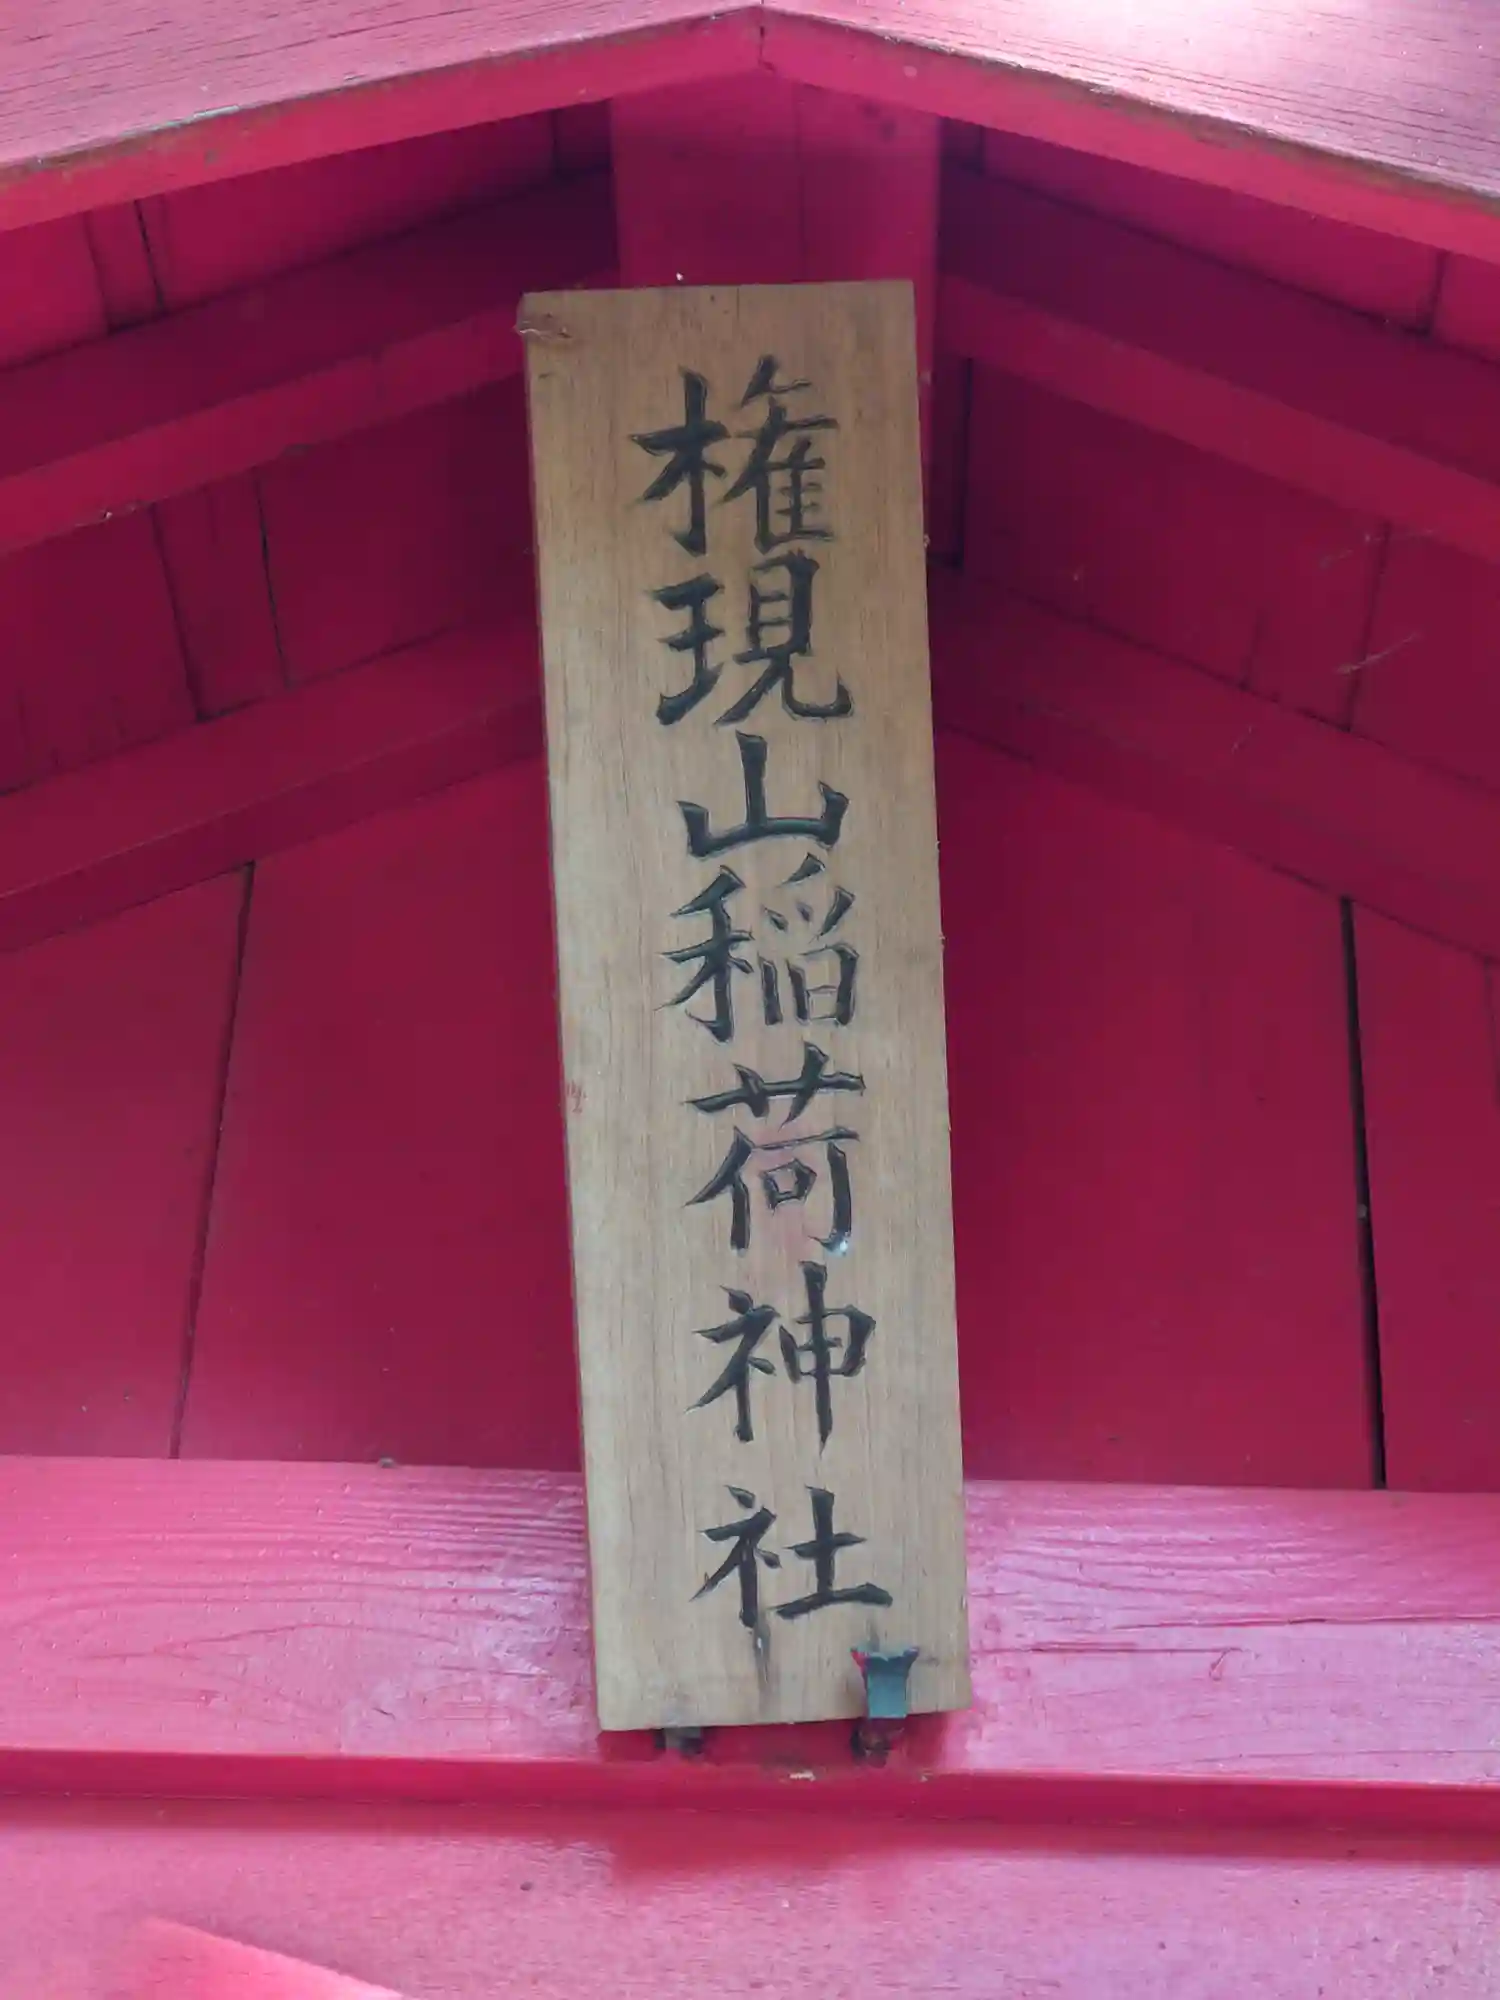 権現山稲荷神社